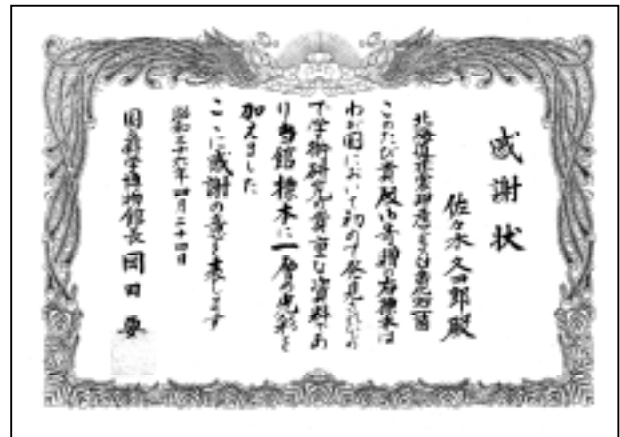 感謝状
佐々木久四郎殿
北海道
このたび貴殿御寄贈の右標本は
わが国において初めて発見されたもの
で学術研究の貴重な資料であ
り当館標本に一層の光彩を
加えました
ここに感謝の意を表します
昭和三十六年四月二十四日
国立科学博物館長 岡田 要